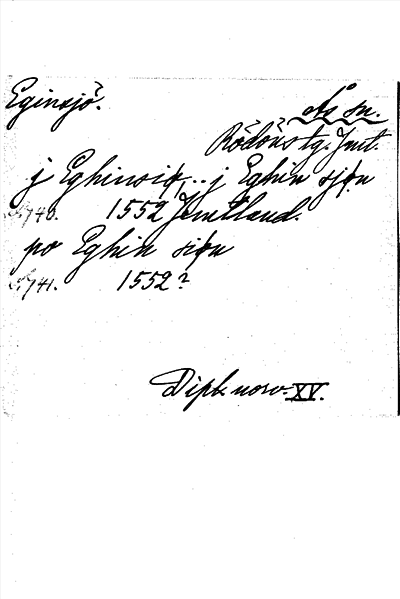 Eginsjö.
Ås sn.
Rödöns tg. Jmt.
j Eghinsiø, .. j Eghin sjøn
s. 740. 1552 Jemtland.
po Eghin siøn
s. 741. 1552?
Dipl. norv. XV.